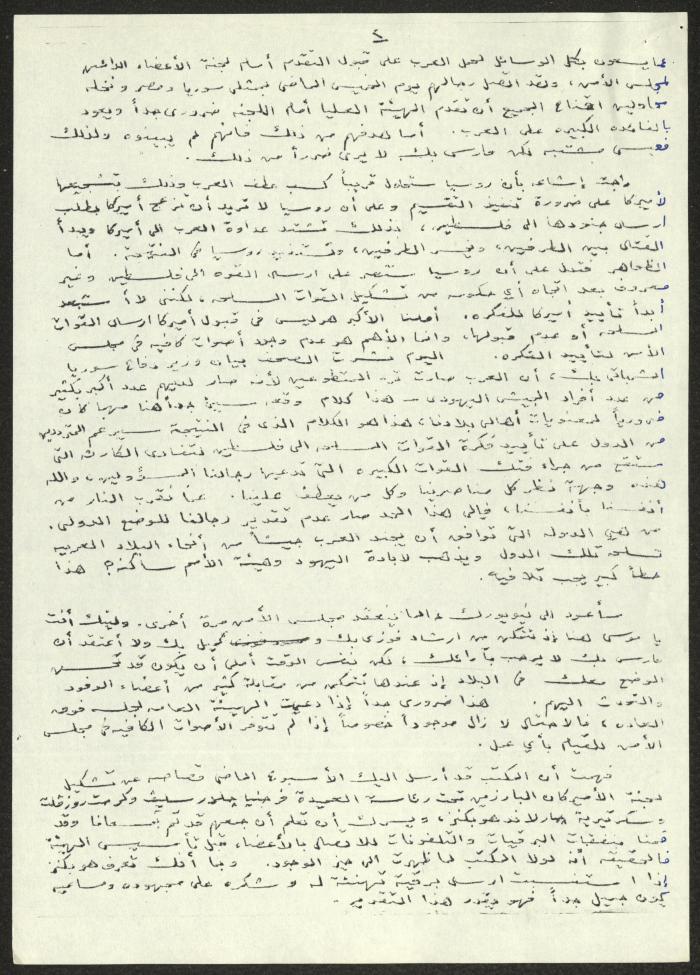 ٢
بكل الوسائل لحمل العرب على قبول التقدم أمام لجنة الأعضاء الدائمين
لمجلس الأمن، ولقد اتصل رجالهم يوم الخميس الماضي بممثلي سوريا ومصر
محاولين اقناع الجميع أن تقدم الهيئة العليا أمام اللجنة ضروري جداً ويعود
بالفائدة الكبيره على العرب. أما هدفهم من ذلك فانهم لم يبينوه ولذلك
مشتبه لكن فارس بك لا يرى ضرراً من ذلك.
راجت إشاعه بأن روسيا ستحاول قريباً كسب عطف العرب وذلك بتشجيعها
لأميركا على ضرورة تنفيذ التقسيم وعلى أن روسيا لا تريد أن تزعج أميركا بطلب
ارسال جنودها الى فلسطين، بذلك تشتد عداوة العرب الى أميركا ويبدأ
القتال بين الطرفين، الطرفين، وتستفيد روسيا في النتيجة. أما
الظاهر فتدل على أن روسيا ستصر على ارسال القوه الى فلسطين وغير
معروف بعد اتجاه أي حكومه من تشكيل القوات المسلحه، لكنني لا أستبعد
أبداً تأييد أميركا للفكره. أملنا الأكبر هو ليس في قبول أميركا ارسال القوات
المسلحه أو عدم قبولها، وانما الأهم هو عدم وجود أصوات كافيه في مجلس
الأمن لتأييد الفكره. اليوم نشرت الصحف بيان وزير دفاع سوريا
الشرباتي بك، أن العرب صارت المتطوعين لأنه صار لديهم عدد أكبر بكثير
من عدد أفراد الجيش اليهودي - هذا كلام وقعه سيئ جداً هنا مهما كان
ضرورياً لمعنويات أهالي بلادنا، هذا هو الكلام الذي في النتيجة سيرغم المترددين
من الدول على تأييد فكرة القوات المسلحه الى فلسطين لتفادي الكارثه التي
ستنتج من جراء فتك القوات الكبيره التي تدعيها رجالنا المسؤولين، والله
هذه وجهة نظر كل مناصرينا وكل من يعطف علينا. عما نقرب النار من
أنفسنا بأنفسنا، فإلى هذا الحد صار عدم تقدير رجالنا للوضع الدولي.
من هي الدولة التي توافق أن يجند العرب جيشاً من أنحاء البلاد العربيه
تسلحه تلك الدول ويذهب لابادة اليهود وهيئة الأمم ساكته؟ هذا
خطأ كبير يجب تلافيه.
سأعود الى نيويورك حالما ينعقد مجلس الأمن مرة أخرى. وليتك أنت
يا موسى هنا إذ تتمكن من ارشاد فوزي بك و جميل بك ولا أعتقد أن
فارس بك لا يرحب بآرائك، لكن بنفس الوقت أملي أن يكون قد تحسن
الوضع معك في البلاد إذ عندها تتمكن من مقابلة كثير من أعضاء الوفود
والتحدث اليهم. هذا ضروري جداً إذا دعيت الهيئة العامه لجلسه فوق
العاده، فالاحتمال لا زال موجوداً خصوصاً إذا لم تتوفر الأصوات الكافيه في مجلس
الأمن للقيام بأي عمل.
فهمت أن المكتب قد أرسل اليك الأسبوع الماضي قصاصه عن تشكيل
لجنة الأميركان البارزين تحت رئاسة العميدة فرجينيا جلدرسليف وكرمت روزفلت
وسكرتيرية جارلاند هوبكنز، ويسرك أن تعلم أن جمعهم قد تم وقد
قمنا بنفقات البرقيات والتلفونات للاتصال بالأعضاء قبل تأسيس الهيئة
فالحقيقه أنه لولا المكتب لما ظهرت الى حيز الوجود. وبما أنك تعرف هوبكنز
إذا استنسبت ارسال برقية تهنئة له وشكره على مجهوده ومساعيه
يكون جميل جداً فهو يقدر هذا التقدير.